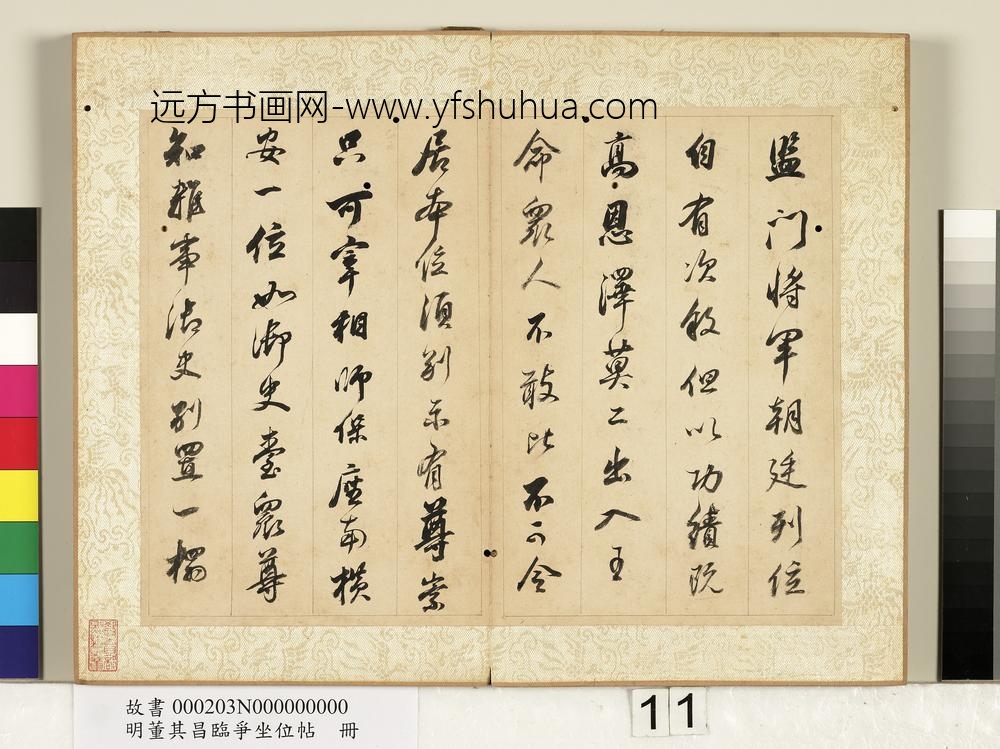 远方书画网-www.yfshuhua.com
監門將軍朝廷列位
自有次敘但以功績既
高恩澤莫二出入王
命眾人不敢比不可令
居本位須別示有尊崇
只可宰相師保座南橫
安一位如御史臺眾尊
知雜事御史別置一榻
故書 000203N000000000
明董其昌臨爭坐位帖 冊
11